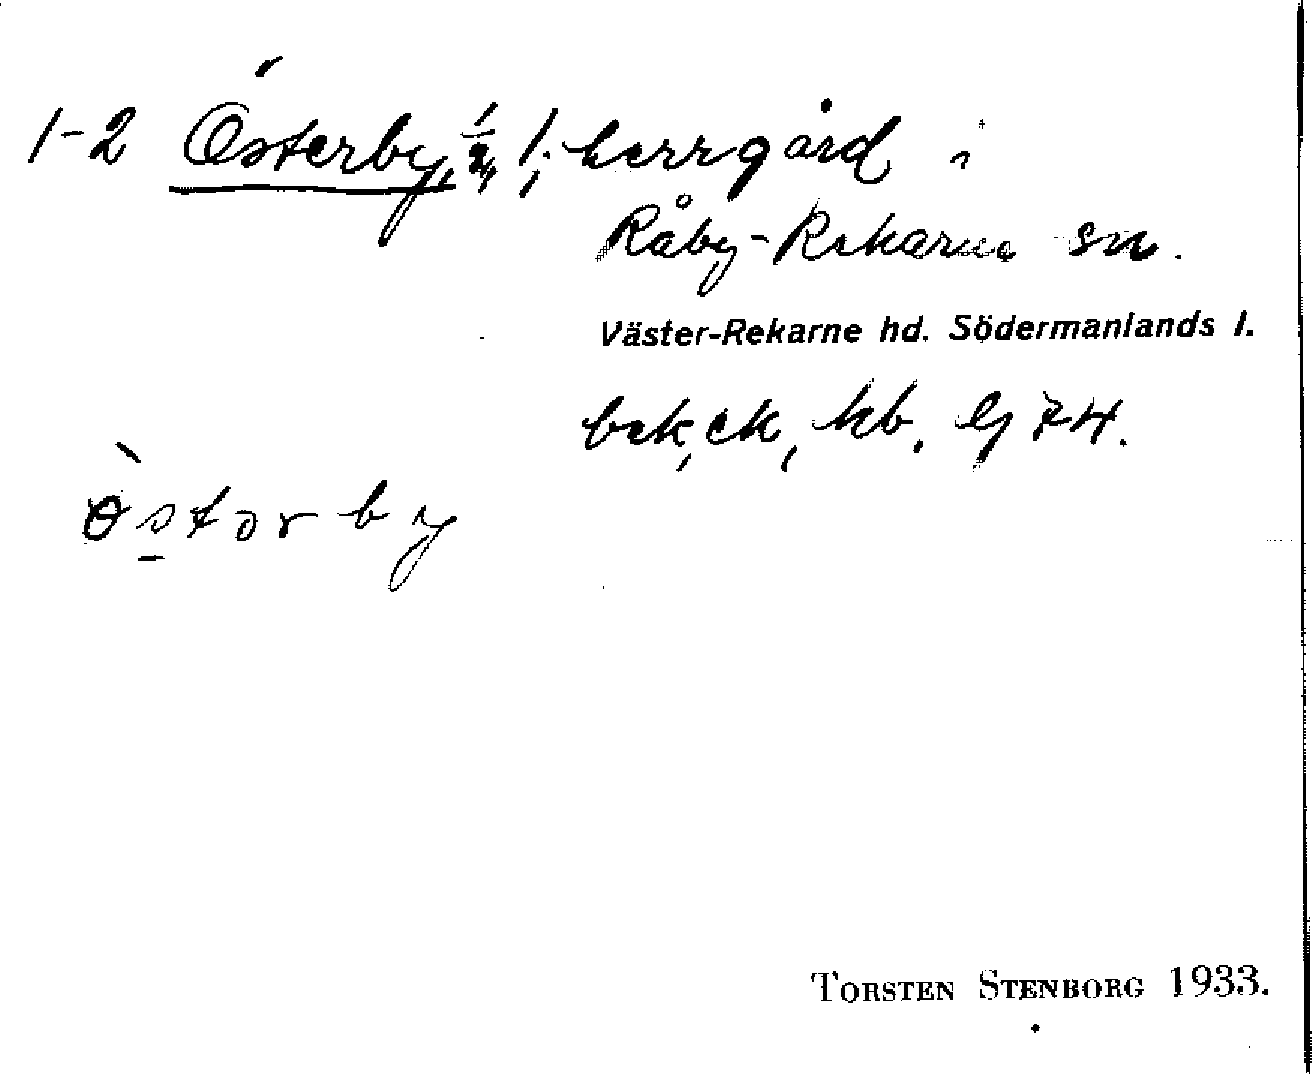 1-2 Österby, ½, 1; herrgård i
Råby-Rekarne sn.
Väster-Rekarne hd. Södermanlands l.
bek, ek, kb. G 74.
Östərby
TORSTEN STENBORG 1933.